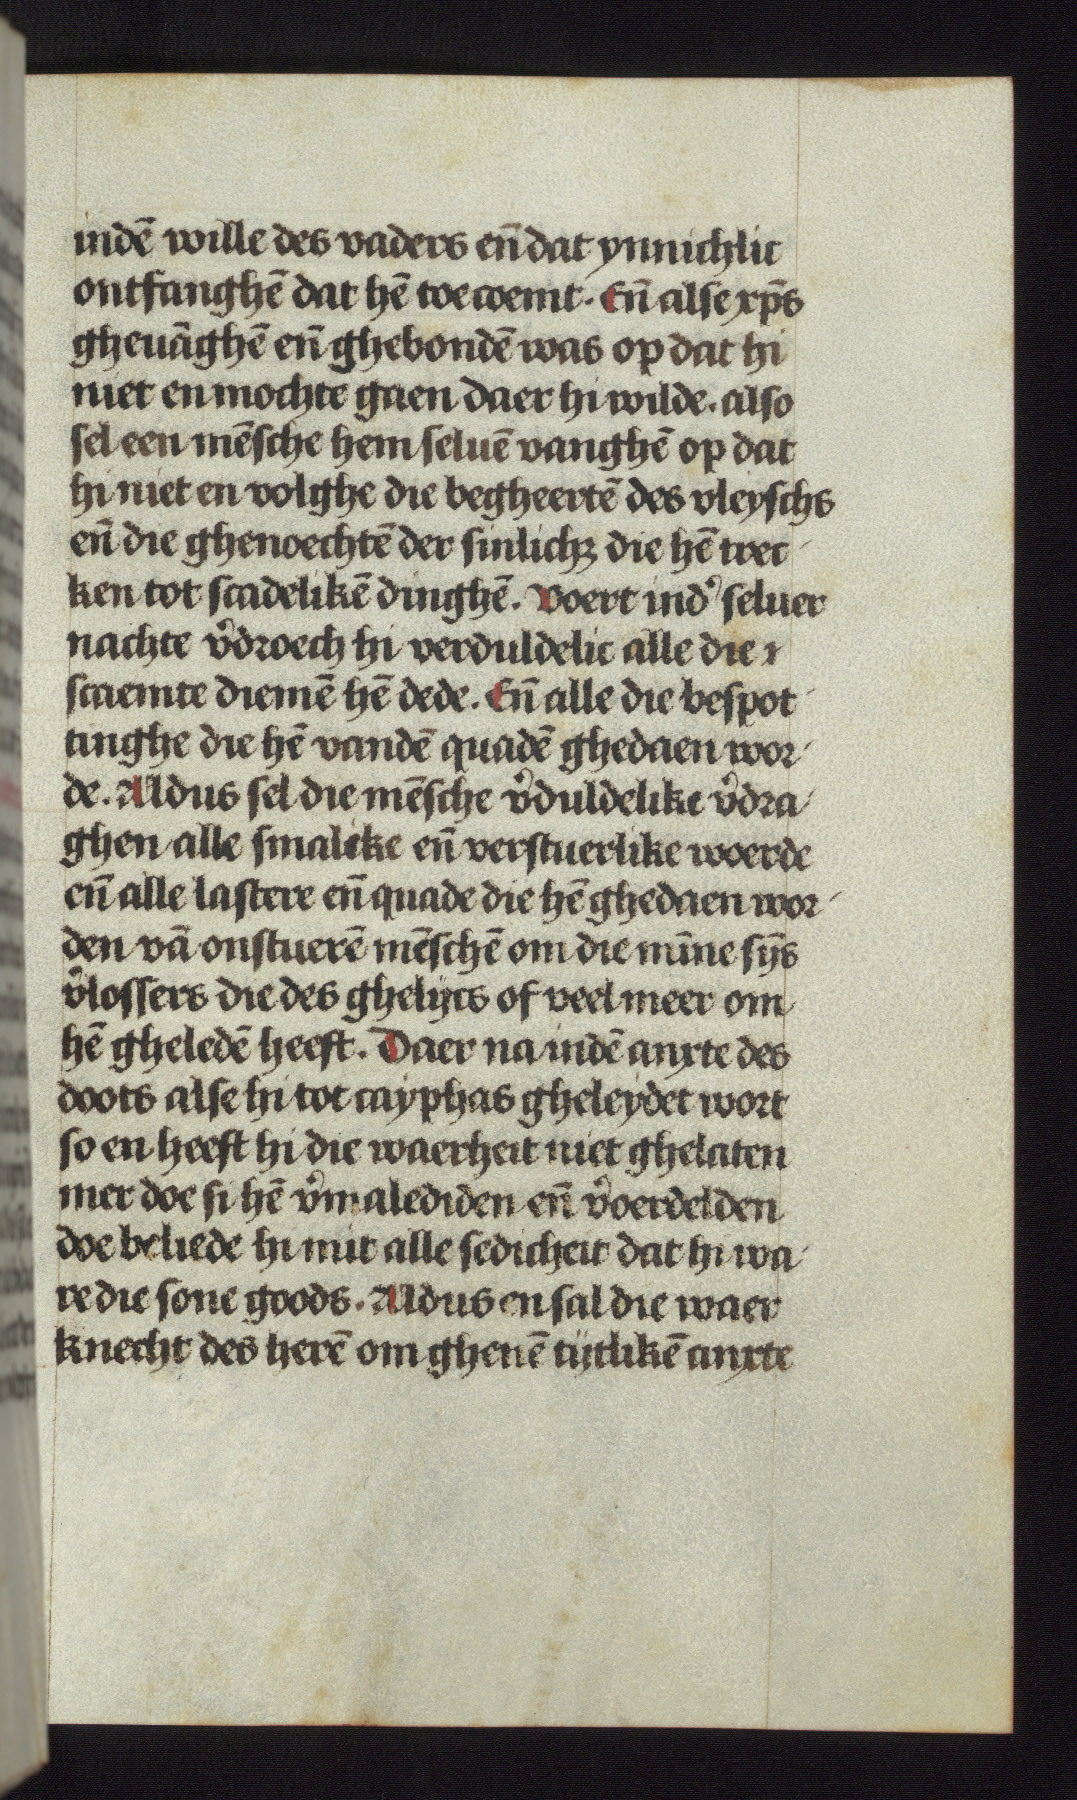 indē wille des vaders en̄ dat ynnichlic
ontfanghē dat hē toecoemt. En̄ alse xp̄s
gheuāghē en̄ ghebondē was op dat hi
niet en mochte gaen daer hi wilde. also
sel een mēsche hem seluē vanghē op dat
hi niet en volghe die begheertē des vleyschs
en̄ die ghenoechtē der sinlichꝫ die hē trec
ken tot scadelikē dinghē. Voert indʼ seluer
nachte vʼdroech hi verduldelic alle die
scaemte diemē hē dede. En̄ alle die bespot
tinghe die hē vandē quadē ghedaen wor
de. Aldus sel die mēsche vʼduldelike vʼdra
ghen alle smalike en̄ verstuerlike woerde
en̄ alle lastere en̄ quade die hē ghedaen wor
den vā onstuerē mēschē om die mīne sijs
vʼlossers die des ghelijcs of veel meer om
hē gheledē heeft. Daer na indē anxte des
doots alse hi tot cayphas gheleydet wort
so en heeft hi die waerheit niet ghelaten
mer doe si hē vʼmalediden en̄ vʼoerdelden
doe beliede hi mit alle sedicheit dat hi wa
re die sone goods. Aldus en sal die waer
knecht des herē om ghenē tijtlikē anxte